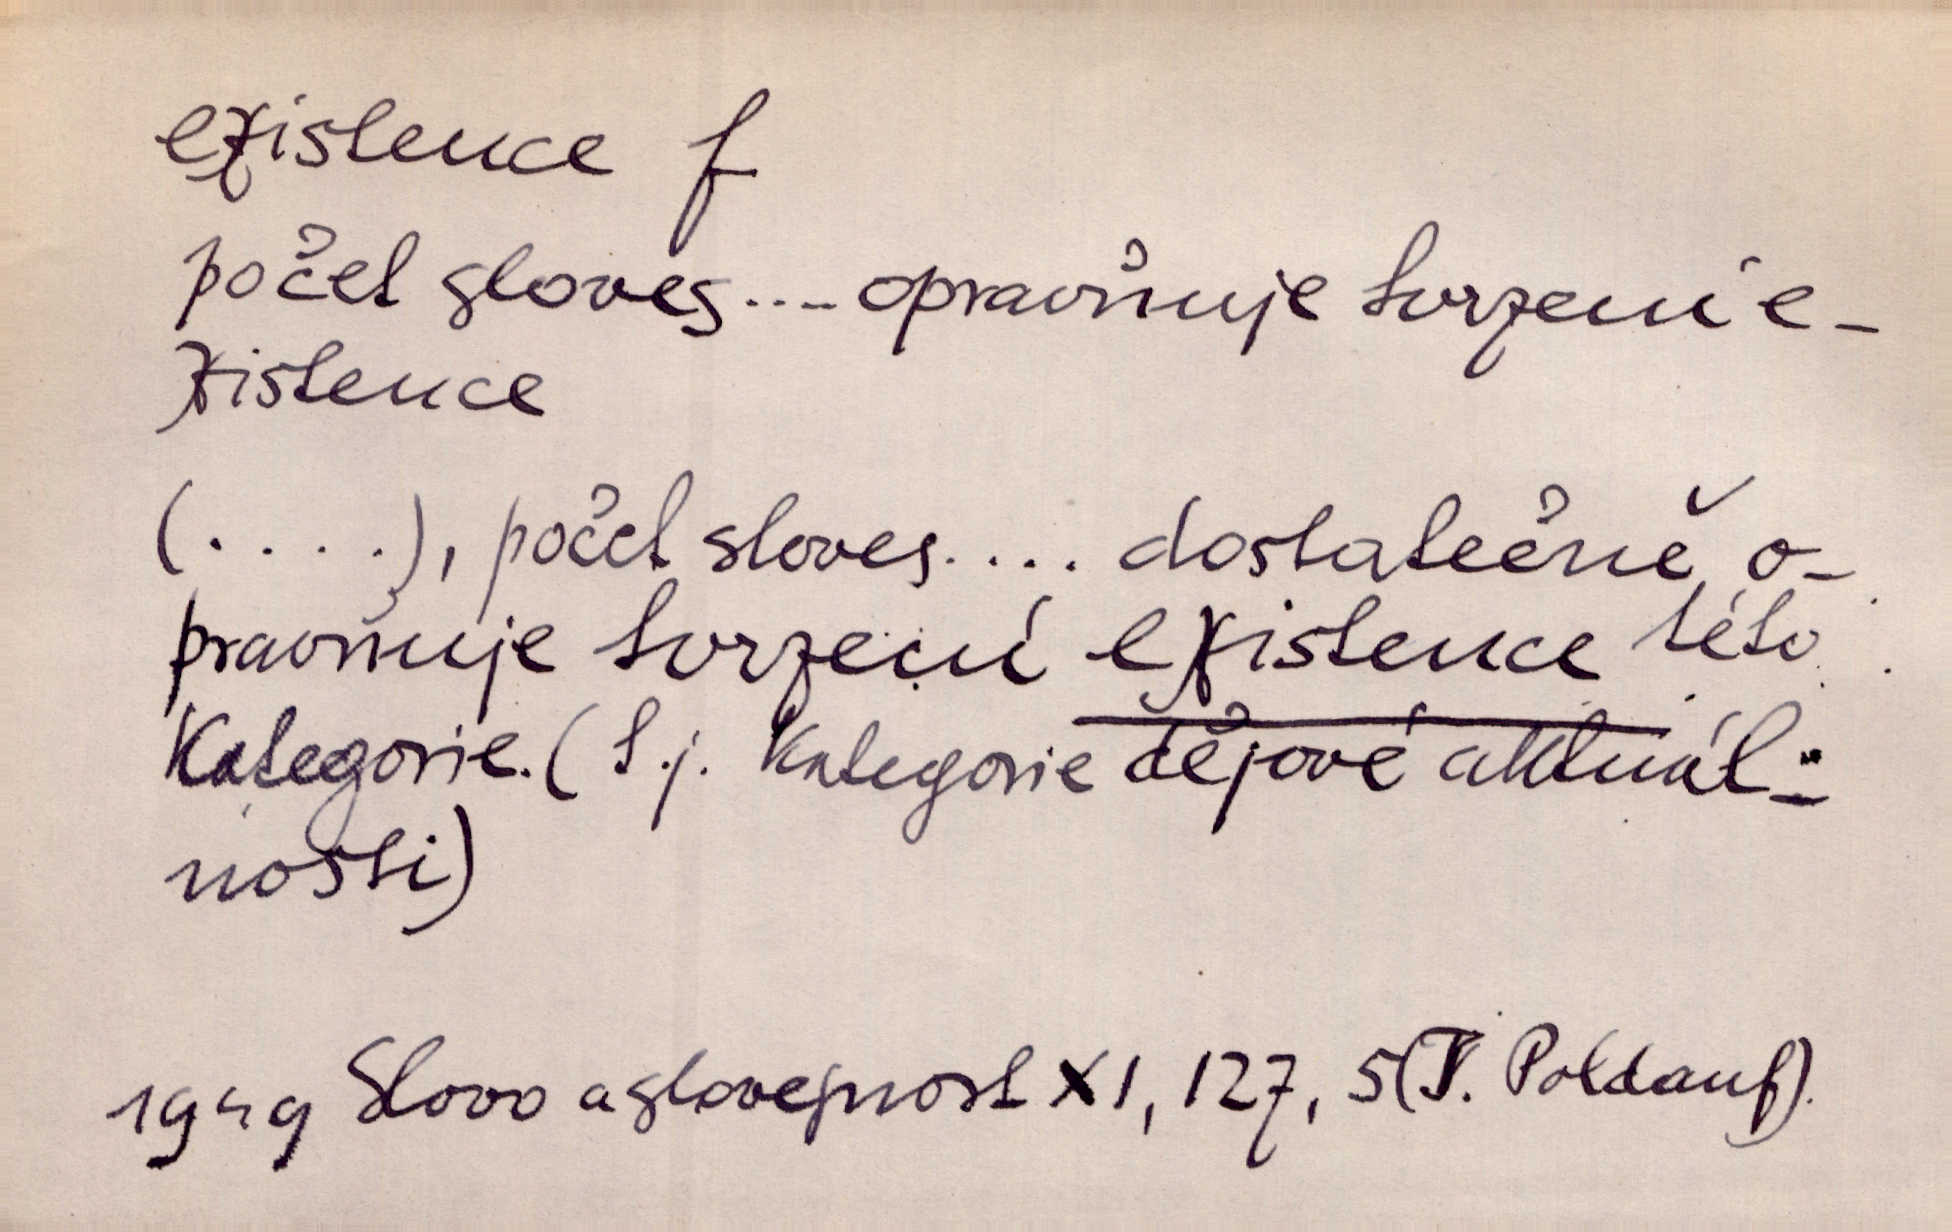 existence f
počet sloves.... opravňuje tvrzení e-
xistence
(....), počet sloves.... dostatečně o-
pravňuje tvrzení existence této
kategorie. (t.j. kategorie dějové aktuál-
nosti)
1949 Slovo a slovesnost XI, 127, 5 (I. Poldauf).